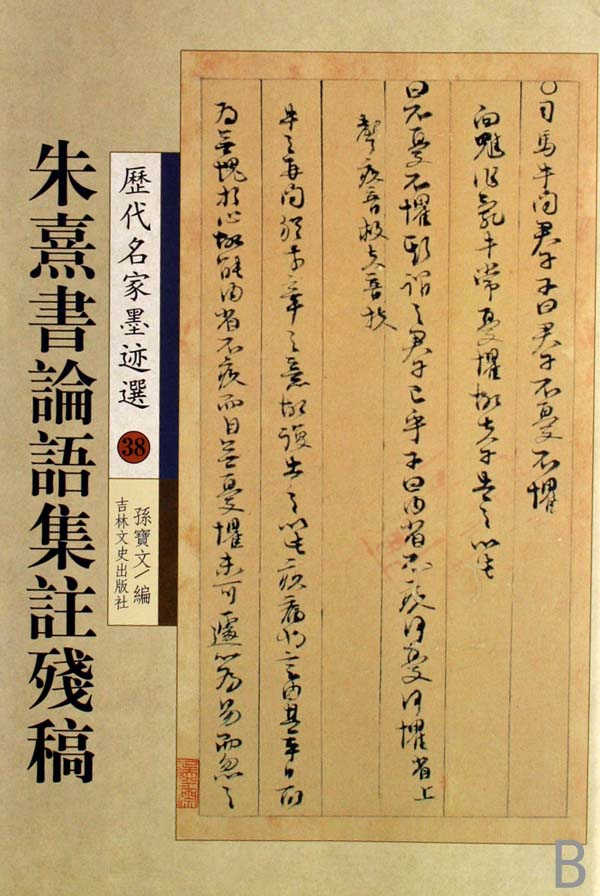 ○司馬牛問君子子曰君子不憂不懼
向魋作亂牛常憂懼故夫子告之以此
曰不憂不懼斯謂之君子已乎子曰內省不疚何憂何懼省上
聲疚音救夫音扶
牛之再問猶前章之意故復告之以此疚病也言由其平日所
為無愧於心故能內省不疚而自無憂懼未可遽以為易而忽之
歷代名家墨迹選
38
孫寶文/編
吉林文史出版社
朱熹書論語集註殘稿
B